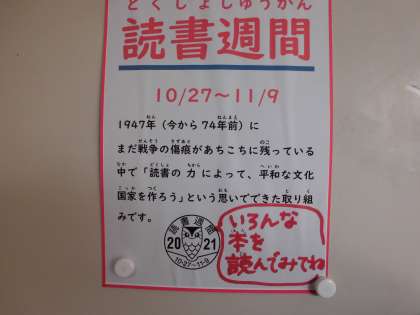 どくしょしゅうかん
読書週間
10/27～11/9
1947年(今から74年前)に
まだ戦争の傷痕があちこちに残っている
中で「読書の力によって、平和な文化
国家を作ろう」という思いでできた取り組
みです。
読書週間
20 21
10・27～11・9
いろんな
本を
読んでみてね